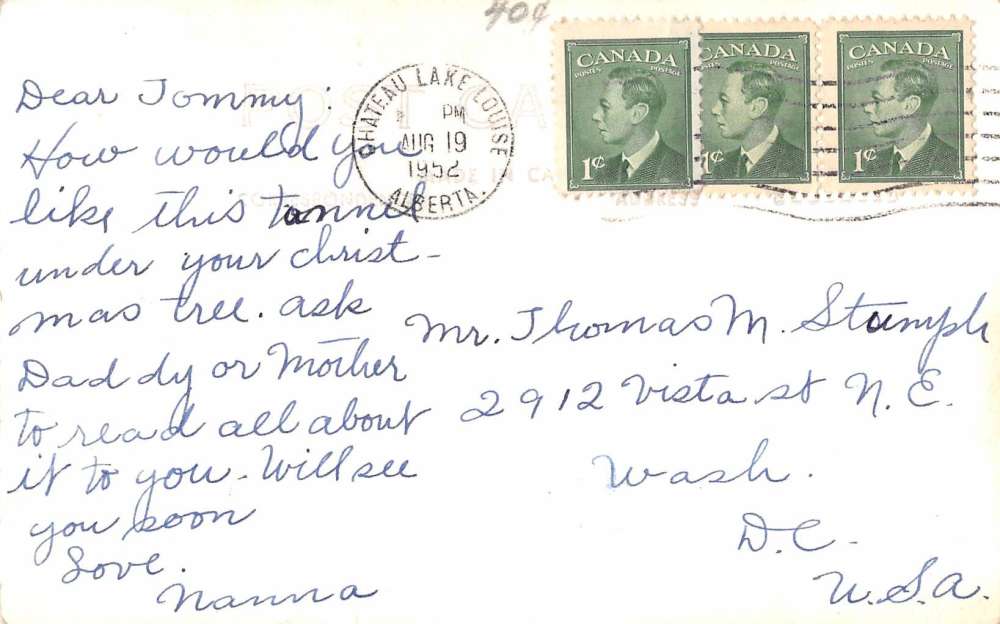 40¢
CANADA
POSTES POSTAGE
1¢
CANADA
POSTES POSTAGE
1¢
CANADA
POSTES POSTAGE
1¢
CHATEAU LAKE LOUISE
PM
AUG 19
1952
ALBERTA.
POST CA
DE IN CA
CORRESPONDEN
ADDRESS
Dear Tommy:
How would you
like this tunnel
under your Christ-
mas tree. ask
Daddy or Mother
to read all about
it to you - Will see
you soon
Love.
Nanna
Mr. Thomas M. Stumph
2912 Vista st N.E.
Wash.
D.C.
U.S.A.